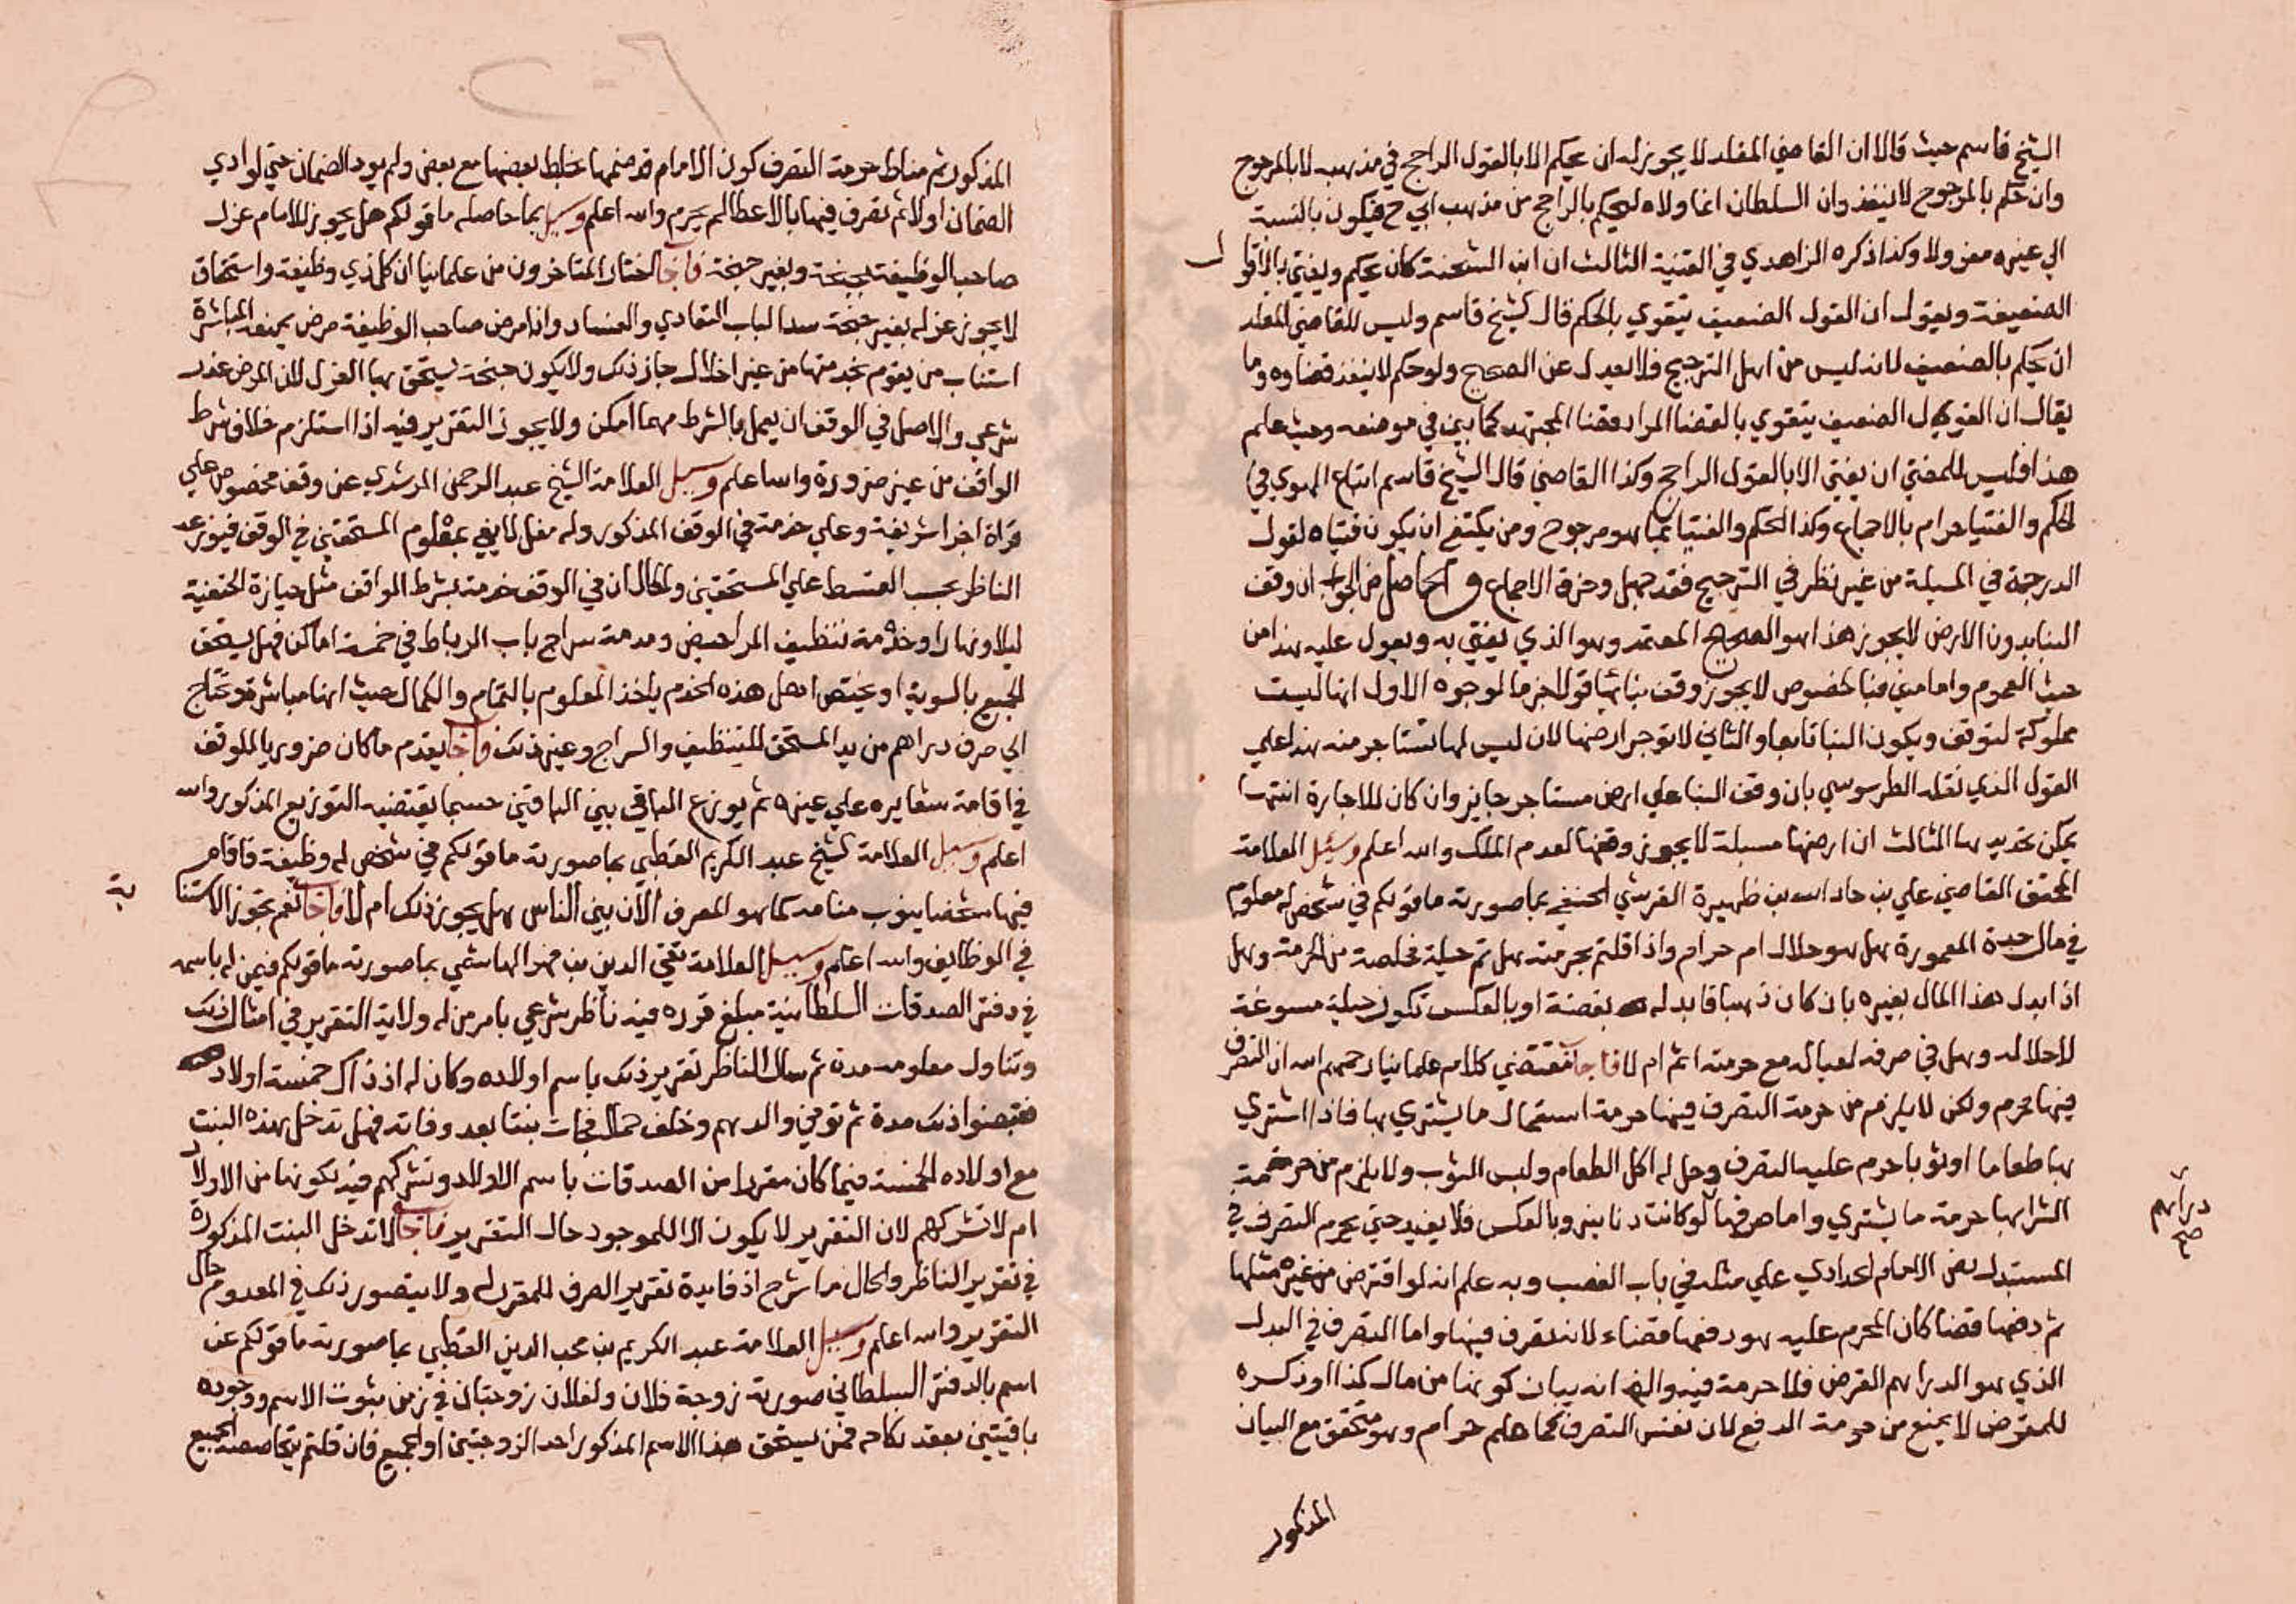 الشيخ قاسم حيث قالا ان القاضي المقلد لا يجوز له ان يحكم الا بالقول الراجح في مذهبه لا بالمرجوح
وان حكم بالمرجوح لا ينفذ وان السلطان انما ولاه ليحكم بالراجح من مذهب ابي ح فيكون بالنسبة
الي غيره معزولا وكذا ذكره الزاهدي في القنية الثالث ان ابن الشحنة كان يحكم ويفتي بالاقوال
الضعيفة ويقول ان القول الضعيف يتقوي بالحكم قال الشيخ قاسم وليس للقاضي المقلد
ان يحكم بالضعيف لانه ليس من اهل الترجيح فلا يعدل عن الصحيح ولو حكم لا ينفذ قضاوه وما
يقال ان القول الضعيف يتقوي بالقضا المراد قضا المجتهد كما بين في موضعه وحيث علم
هذا فليس للمفتي ان يفتي الا بالقول الراجح وكذا القاضي قال الشيخ قاسم اتباع الهوي في
الحكم والفتيا حرام بالاجماع وكذا الحكم والفتيا بما هو مرجوح ومن يكتفي ان يكون فتياه لقول
الدرجة في المسيلة من غير نظر في الترجيح فقد جهل وخرق الاجماع والحاصل من الجواب ان وقف
البنا بدون الارض لا يجوز هذا هو الصحيح المعتمد وهو الذي يفتي به ويعول عليه هذا من
حيث العموم واما مني فبالخصوص لا يجوز وقف بنائها قولا جزما لوجوه الاول انها ليست
مملوكة لتوقف ويكون البنا تابعا والثاني لا توجر ارضها لان ليس لها تستاجر منه هذا علي
القول الذي نقله الطرسوسي بان وقف البنا علي ارض مستاجر جايز وان كان للاجارة انتها
يمكن تحديدها الثالث ان ارضها مسبلة لا يجوز وقفها لعدم الملك والله اعلم وسئل العلامة
المحقق القاضي علي بن جار الله بن ظهيرة القرشي الحنفي بما صورته ما قولكم في شخص له معلوم
في مال جدة المعمورة هل هو حلال ام حرام واذا قلتم بحرمته هل ثم حيلة مخلصة من الحرمة وهل
اذا ابدل هذا المال بغيره بان كان ذهبا فابدله بفضة او بالعكس تكون حيلة مسوغة
لاحلاله وهل في صرفه لعياله مع حرمته اثم ام لا فاجاب مقتضي كلام علمائنا رحمهم الله ان التصرف
فيها محرم ولكن لا يلزم من حرمة التصرف فيها حرمة استعمال ما يشتري بها فاذا اشتري
بها طعاما او ثوبا حرم عليه التصرف وحل له اكل الطعام ولبس الثوب ولا يلزم من حرمة
الشرا بها حرمة ما يشتري واما صرفها لو كانت دنانير وبالعكس فلا يفيد حتي يحرم التصرف في
دراهم
صح
المستبدل نص الامام الحدادي علي مثله في باب الغصب وبه علم انه لو اقترض من غيره مثلها
ثم دفعها قضا كان المحرم عليه هو دفعها قضاء لانه تصرف فيها واما التصرف في البدل
الذي هو الدراهم القرض فلا حرمة فيه والله انه بيان كونها من مال كذا او ذكره
للمقرض لا يمنع من حرمة الدفع لان نفس التصرف كما علم حرام وهو متحقق مع البيان
المذكور
المذكور ثم مناط حرمة التصرف كون الامام قد ضمنها بخلط بعضها مع بعض ولم يود الضمان حتي لو ادي
الضمان اولا ثم تصرف فيها بالاعطا لم يحرم والله اعلم وسيل بما حاصله ما قولكم هل يجوز للامام عزل
صاحب الوظيفة بجنحة وبغير جنحة فاجاب اختار المتاخرون من علمائنا ان كل ذي وظيفة واستحقاق
لا يجوز عزله بغير جنحة سدا لباب التعادي والفساد واذا مرض صاحب الوظيفة مرض يمنعه المباشرة
استناب من يقوم بخدمتها من غير اخلال جاز ذلك ولا يكون جنحة يستحق بها العزل لان المرض عذر
شرعي والاصل في الوقف ان يعمل بالشرط مهما امكن ولا يجوز التقرير فيه اذا استلزم خلاف شرط
الواقف من غير ضرورة والله اعلم وسيل العلامة الشيخ عبد الرحمن المرشدي عن وقف مخصوص علي
قراة اجزا شريفة وعلي خدمة في الوقف المذكور وله مغل لا يفي بمعلوم المستحقين في الوقف فيوزعه
الناظر بحسب القسط علي المستحقين والحال ان في الوقف خدمة بشرط الواقف مثل حيازة الحنفية
ليلا ونهارا وخدمة تنظيف المراحيض وخدمة سراج باب الرباط في خمسة اماكن فهل يستحق
الجميع بالسوية او يختص اهل هذه الخدم باخذ المعلوم بالتمام والكمال حيث انها مباشرة وتحتاج
الي صرف دراهم من يد المستحق للتنظيف والسراج وغير ذلك فاجاب يقدم ما كان ضروريا للوقف
في اقامة شعايره علي غيره ثم يوزع الباقي بين الباقين حسبما يقتضيه التوزيع المذكور والله
اعلم وسيل العلامة الشيخ عبد الكريم القطبي بما صورته ما قولكم في شخص له وظيفة فاقام
فيها شخصا ينوب منابه كما هو المعرف الآن بين الناس هل يجوز ذلك ام لا فاجاب نعم تجوز الاستنا
بة
في الوظايف والله اعلم وسيل العلامة تقي الدين بن فهد الهاشمي بما صورته ما قولكم فيمن له باسمه
في دفتر الصدقات السلطانية مبلغ قرره فيه ناظر شرعي بامر من له ولاية التقرير في امثال ذلك
وتناول معلومه مدة ثم سال الناظر تقرير ذلك باسم اولاده وكان له اذ ذاك خمسة اولاد
فقبضوا ذلك مدة ثم توفي والدهم وخلف حملا فجات بنتا بعد وفاته فهل تدخل هذه البنت
مع اولاده الخمسة فيما كان مقررا من الصدقات باسم الاولاد وتشركهم فيه لكونها من الاولاد
ام لا تشركهم لان التقرير لا يكون الا للموجود حال التقرير فاجاب لا تدخل البنت المذكورة
في تقرير الناظر والحال ما شرح اذ فايدة تقرير الصرف للمقرر له ولا يتصور ذلك في المعدوم حال
التقرير والله اعلم وسيل العلامة عبد الكريم بن محب الدين القطبي بما صورته ما قولكم عن
اسم بالدفتر السلطاني صورته زوجة فلان ولفلان زوجتان في زمن ثبوت الاسم ووجوده
باقيتين بعقد نكاحه فمن يستحق هذا الاسم المذكور احد الزوجتين او الجميع فان قلتم يتحاصصنه الجميع